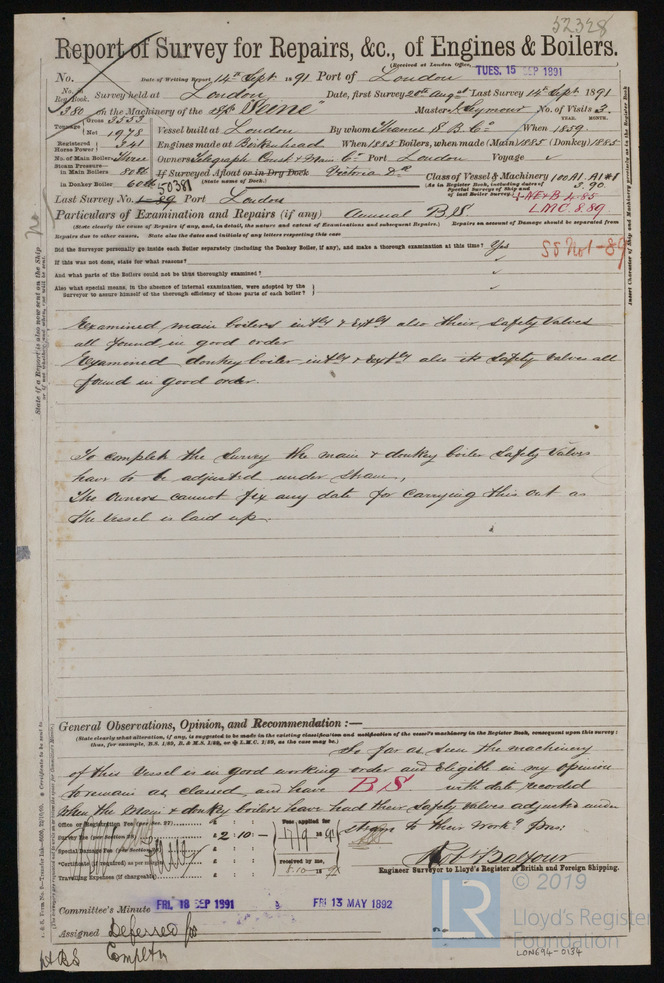 52328
Report of Survey for Repairs, &c., of Engines & Boilers.
(Received at London Office, TUES. 15 SEP 1891
No. Date of Writing Report 14th Sept 1891 Port of London
No. in Reg. Book. Survey held at London Date, first Survey 20th Augst Last Survey 14th Sept 1891
380 on the Machinery of the "Seine" Master Seymour No. of Visits 3
Tonnage Gross 3553
Net 1978 Vessel built at London By whom Thames S. B. Co When 1859
YEAR. MONTH.
Registered Horse Power 341 Engines made at Birkenhead When 1885 Boilers, when made (Main) 1885 (Donkey) 1885
No. of Main Boilers Three Owners Telegraph Const & Main Co Port London Voyage
Steam Pressure in Main Boilers 80 lb If Surveyed Afloat or in Dry Dock Victoria Dk
(State name of Dock.)
Class of Vessel & Machinery 100A1. A1
(As in Register Book, including dates of Special Surveys of Ship and of last Boiler Survey.) 3.90
in Donkey Boiler 60 lb
50381
N.E & B 4.85
L.M.C. 8.89
Last Survey No. 89 Port London
Particulars of Examination and Repairs (if any) Annual B.S.
(State clearly the cause of Repairs, if any, and, in detail, the nature and extent of Examinations and subsequent Repairs.) Repairs on account of Damage should be separated from
Repairs due to other causes. State also the dates and initials of any letters respecting this case
Did the Surveyor personally go inside each Boiler separately (including the Donkey Boiler, if any), and make a thorough examination at this time? Yes
SS No1-89
If this was not done, state for what reasons?
And what parts of the Boilers could not be thus thoroughly examined?
Also what special means, in the absence of internal examination, were adopted by the
Surveyor to assure himself of the thorough efficiency of those parts of each boiler?
Examined main boilers intly & extly also their safety valves
all found in good order
Examined donkey boiler intly & extly also its safety valves all
found in good order.
To complete the survey the main & donkey boiler safety valves
have to be adjusted under steam,
The owners cannot fix any date for carrying this out as
the vessel is laid up.
General Observations, Opinion, and Recommendation:—
(State clearly what alteration, if any, is suggested to be made in the existing classification and notification of the vessel's machinery in the Register Book, consequent upon this survey;
thus, for example, B.S. 1/89, B. & M.S. 1/89, or L.M.C. 1/89, as the case may be.)
So far as seen the machinery
of this vessel is in good working order and eligible in my opinion
to remain as classed and have BS with date recorded
when the main & donkey boilers have had their safety valves adjusted under
steam to their work'g pres:
Office or Registration Fee (per Sec. 27)
Survey Fee (per Section 28) £ 2.10.—
Special Damage Fee (per Section 28)
*Certificate (if required) as per margin
Travelling Expenses (if chargeable)
Fees applied for
17/9/1891
received by me,
Robt Balfour
Engineer Surveyor to Lloyd's Register of British and Foreign Shipping.
Committee's Minute FRI. 18 SEP 1891 FRI 13 MAY 1892
Assigned Deferred for
Completn
BS
© 2019
LR
Lloyd's Register
Foundation
LON694-0134